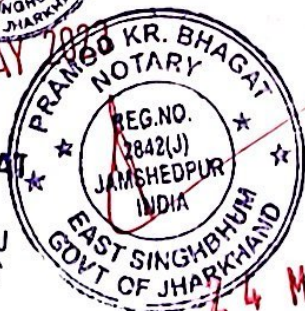 JHARKH
AY 202
PRAMOD KR. BHAGAT
NOTARY
REG.NO.
2842(J)
JAMSHEDPUR
INDIA
EAST SINGHBHUM
GOVT OF JHARKHAND
24 M